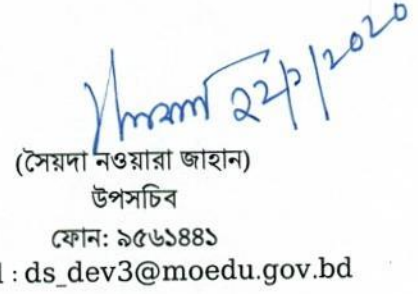 ২২/১/২০২০
(সৈয়দা নওয়ারা জাহান)
উপসচিব
ফোন: ৯৫৬১৪৪১
l : ds_dev3@moedu.gov.bd